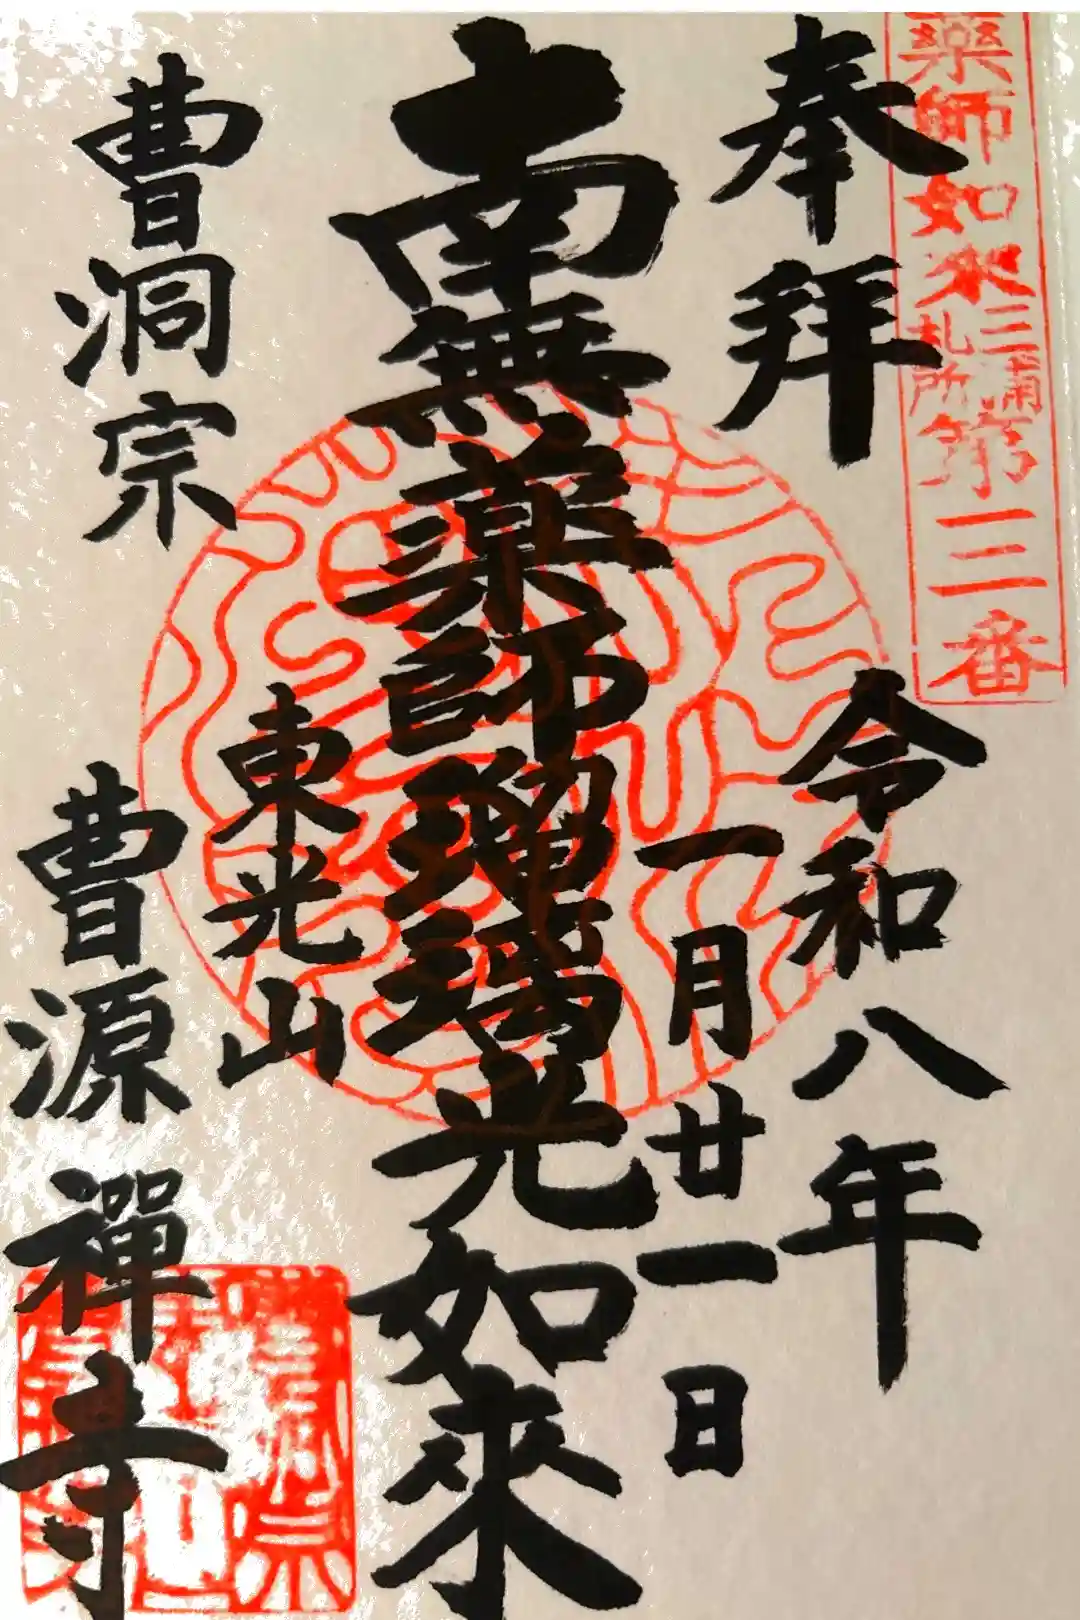 薬師如来三浦札所第三番
奉拝
令和八年
一月廿一日
南無薬師瑠璃光如來
東光山
曹洞宗
曹源禅寺